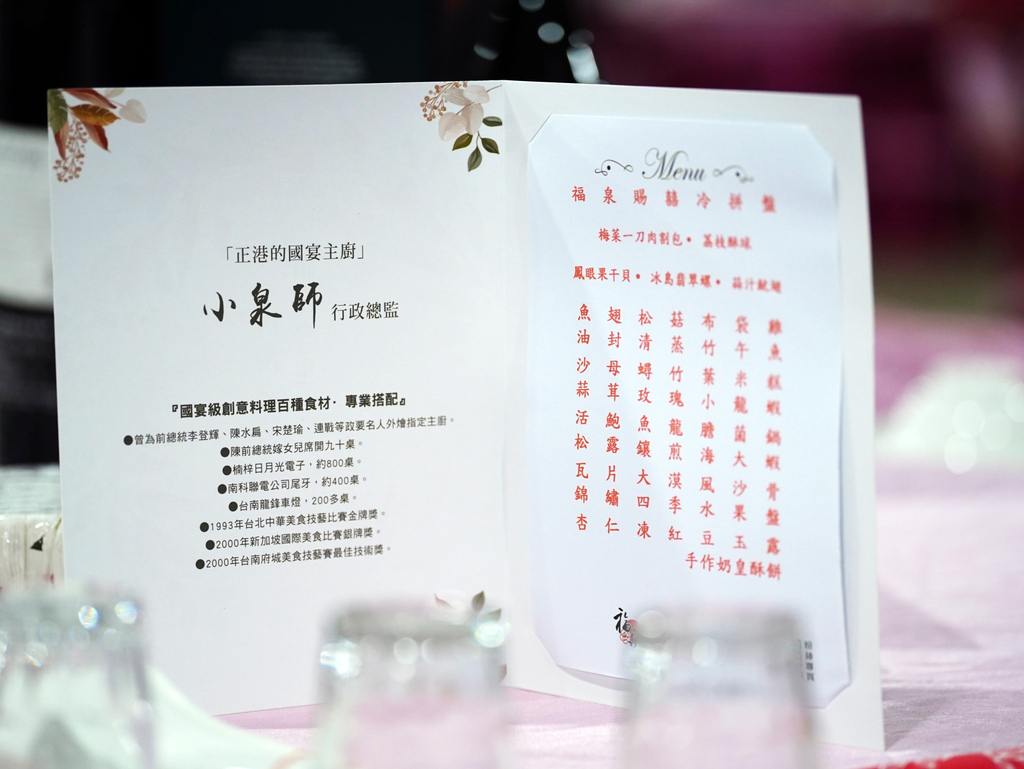 「正港的國宴主廚」
小泉師 行政總監
『國宴級創意料理百種食材·專業搭配』
●曾為前總統李登輝、陳水扁、宋楚瑜、連戰等政要名人外燴指定主廚。
●陳前總統嫁女兒席開九十桌。
●楠梓日月光電子,約800桌。
●南科聯電公司尾牙,約400桌。
●台南龍鋒車燈,200多桌。
●1993年台北中華美食技藝比賽金牌獎。
●2000年新加坡國際美食比賽銀牌獎。
●2000年台南府城美食技藝賽最佳技術獎。
Menu
福泉賜囍冷拼盤
梅菜一刀肉割包●荔枝酥球
鳳眼果干貝●冰島翡翠螺●蒜汁魷翅
魚翅松菇布袋雞
油封清蒸竹午魚
沙母蟳竹葉米糕
蒜茸玫瑰小龍蝦
活鮑魚龍膽菌鍋
松露鑲煎海大蝦
瓦片大漠風沙骨
錦繡四季水果盤
杏仁凍紅豆玉露
手作奶皇酥餅
福